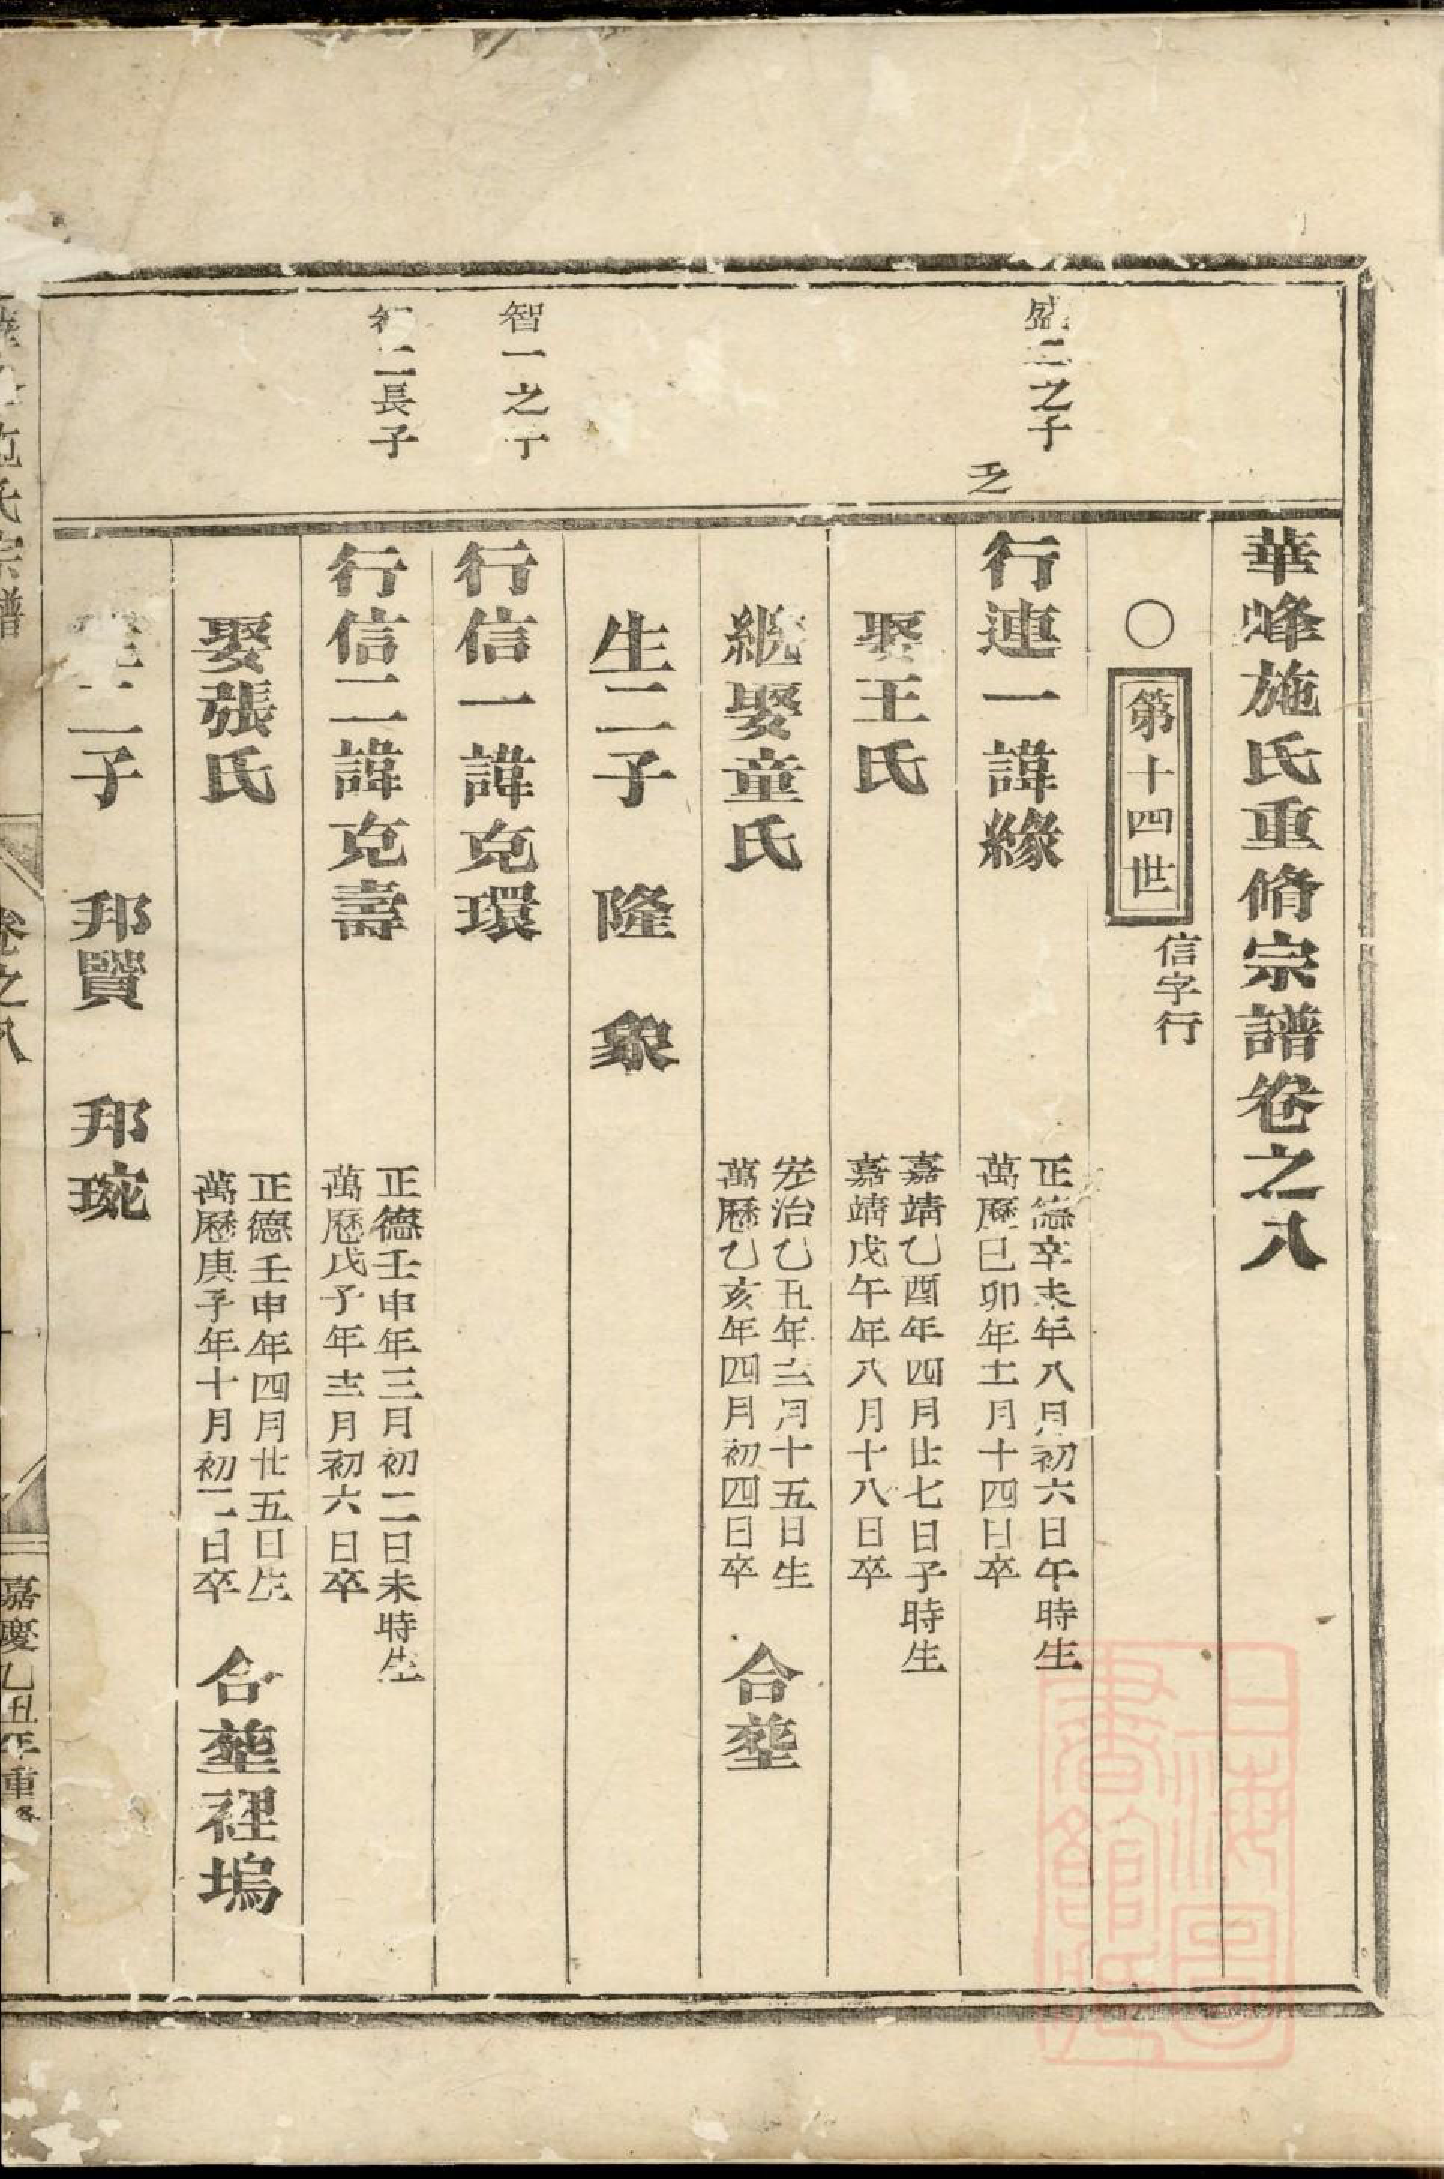 華烽施氏重脩宗譜卷之八
〇第十四世 信字行
盛二之子
行連一諱緣
正德辛未年八月初六日午時生
萬曆己卯年十一月十四日卒
娶王氏
嘉靖乙酉年四月廿七日子時生
嘉靖戊午年八月十八日卒
継娶童氏
弘治乙丑年十五日生
萬曆乙亥年四月初四日卒
合塟
生二子 隆 象
智一之子
行信一諱克環
二長子
行信二諱克壽
正德壬申年三月初二日未時生
萬曆戊子年十二月初六日卒
娶張氏
正德壬申年四月廿五日生
萬曆庚子年十月初二日卒
合塟裡塢
生二子 邦賢 邦琬
氏宗譜
卷之八
嘉慶乙丑年重
上海圖書館藏